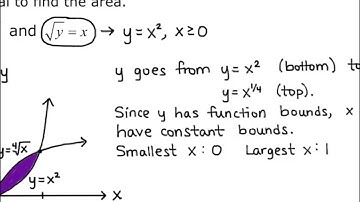 al to find the area.
and √y = x → y = x², x ≥ 0
y goes from y = x² (bottom) to
y = x^(1/4) (top).
Since y has function bounds, x
have constant bounds.
Smallest x : 0 Largest x : 1
y
y = ∜x
y = x²
x